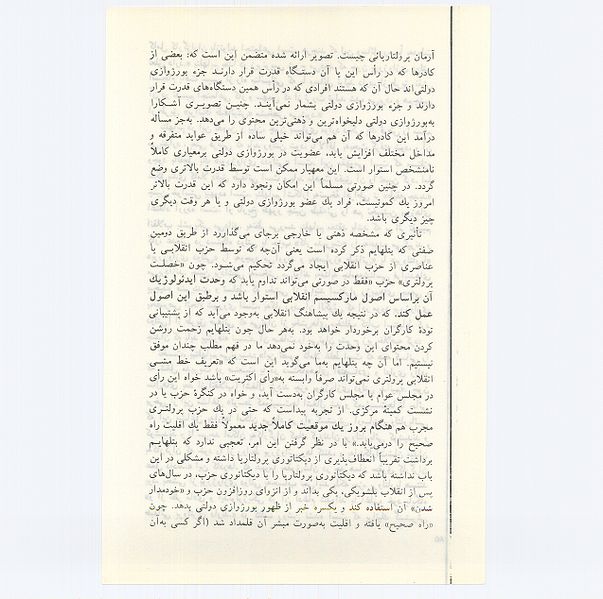 آرمان پرولتاریائی چیست. تصویر ارائه شده متضمن این است که: بعضی از
کادرها که در رأس این یا آن دستگاه قدرت قرار دارند جزء بورژوازی
دولتی‌اند حال آن که هستند افرادی که در رأس همین دستگاه‌های قدرت قرار
دارند و جزء بورژوازی دولتی بشمار نمی‌آیند. چنین تصویری آشکارا
به‌بورژوازی دولتی دلبخواه‌ترین و ذهنی‌ترین محتوی را می‌دهد. به‌جز مسأله
درآمد این کادرها که آن هم می‌تواند خیلی ساده از طریق عواید متفرقه و
مداخل مختلف افزایش یابد، عضویت در بورژوازی دولتی برمعیاری کاملاً
نامشخص استوار است. این معهیار ممکن است توسط قدرت بالاتری وضع
گردد. در چنین صورتی مسلماً این امکان ونجود دارد که این قدرت بالاتر
امروز یك کمونیست، فراد یك عضو بورژوازی دولتی و یا هر وقت دیگری
چیز دیگری باشد.
تأثیری که مشخصه ذهنی یا خارجی برجای می‌گذاررد از طریق دومین
صفتی که بتلهایم ذکر کرده است یعنی آن‌چه که توسط حزب انقلابی یا
عناصری از حزب انقلابی ایجاد می‌گردد تحکیم می‌شود. چون «خصلت
پرولتری» حزب «فقط در صورتی می‌تواند تداوم یابد که وحدت ایدئولوژیك
آن براساس اصول مارکسیسم انقلابی استوار باشد و برطبق این اصول
عمل کند، که در نتیجه یك پیشاهنگ انقلابی به‌وجود می‌آید که از پشتیبانی
تودهٔ کارگران برخوردار خواهد بود. به‌هر حال چون بتلهایم زحمت روشن
کردن محتوای این وحدت را به‌خود نمی‌دهد ما در فهم مطلب چندان موفق
نیستیم. اما آن چه بتلهایم به‌ما می‌گوید این است که «تعریف خط مشی
انقلابی پرولتری نمی‌تواند صرفاً وابسته به‌«رأی اکثریت» باشد خواه این رأی
در مجلس عوام یا مجلس کارگران به‌دست آید، و خواه در کنگرهٔ حزب یا در
نشست کمیتهٔ مرکزی. از تجربه پیداست که حتی در یك حزب پرولتری
مجرب هم هنگام بروز یك موقعیت کاملاً جدید معمولاً فقط یك اقلیت راه
صحیح را درمی‌یابد.» با در نظر گرفتن این امر، تعجبی ندارد که بتلهایم
برداشت تقریباً انعطاف‌پذیری از دیکتاتوری پرولتاریا داشته و مشکلی در این
باب نداشته باشد که دیکتاتوری پرولتاریا را با دیکتاتوری حزب، در سال‌های
پس از انقلاب بلشویکی، یکی بداند و از انزوای روزافزون حزب و «خودمدار
شدن» آن استفاده کند و یکسره خبر از ظهور بورژوازی دولتی بدهد. چون
«راه صحیح» یافته و اقلیت به‌صورت مبشر آن قلمداد شد (اگر کسی به‌آن